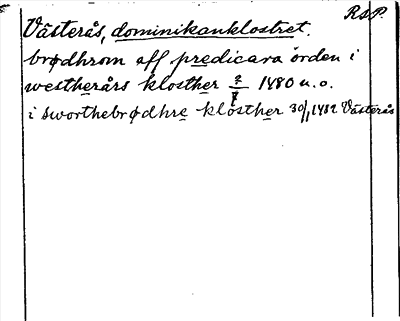 RAP.
Västerås, dominikanklostret.
brødhrom aff predicara orden i
westherårs klosther 2/8 1480 u.o.
i sworthebrødhre klosther 30/1 1482 Västerås